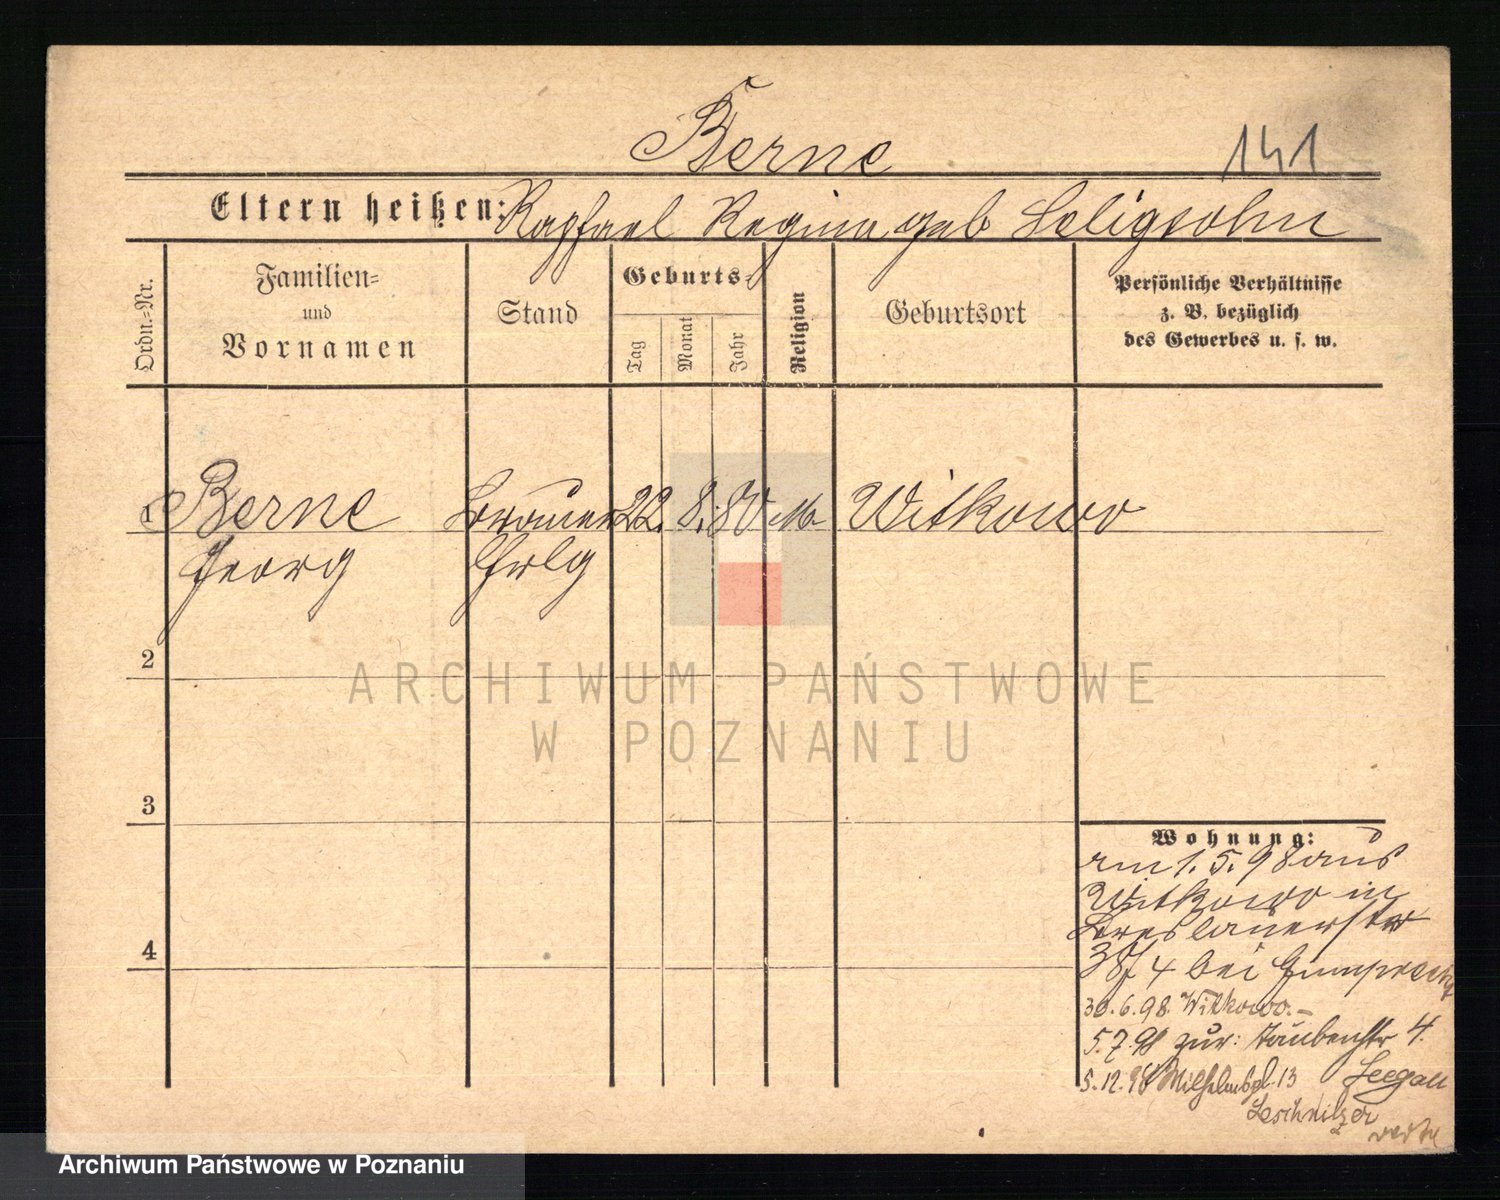 Berne
141
Eltern heißen: Raphael Regina geb Seligsohn
Ordn.-Nr.
Familien-
und
Vornamen
Stand
Geburts-
Tag
Monat
Jahr
Religion
Geburtsort
Persönliche Verhältnisse
z. B. bezüglich
des Gewerbes u. s. w.
1 Berne Brauer 22. 8. 80 Witkowo
Georg
2
3
4
ARCHIWUM PAŃSTWOWE
W POZNANIU
Wohnung:
am 1. 5. 98 aus
Witkowo in
Breslauerstr
4 bei
30.6.98. Witkowo.-
5.7.98 zur: Taubenstr 4.
5.12.98 Wilhelmspl. 13
Leschnitzer
Archiwum Państwowe w Poznaniu